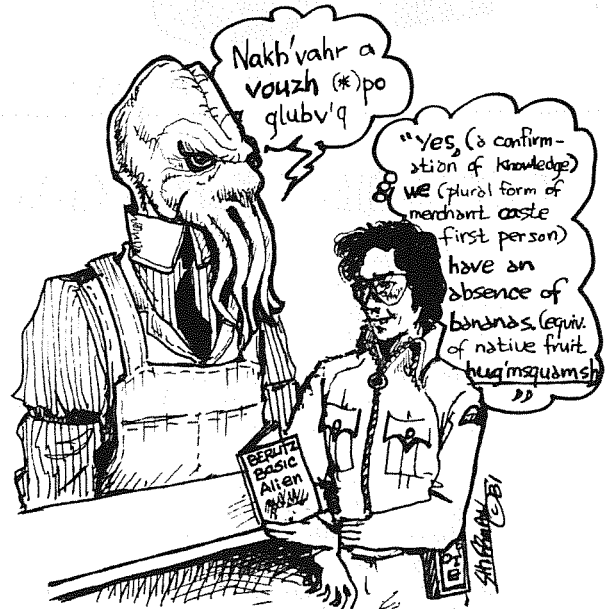 Nakh'vahr a
vouzh (*)po
glubv'q
"Yes, (a confirm-
ation of knowledge)
we (plural form of
merchant caste
first person)
have an
absence of
bananas. (equiv.
of native fruit
hug'msquamsh
"
BERLITZ
BASIC
Alien
© 81